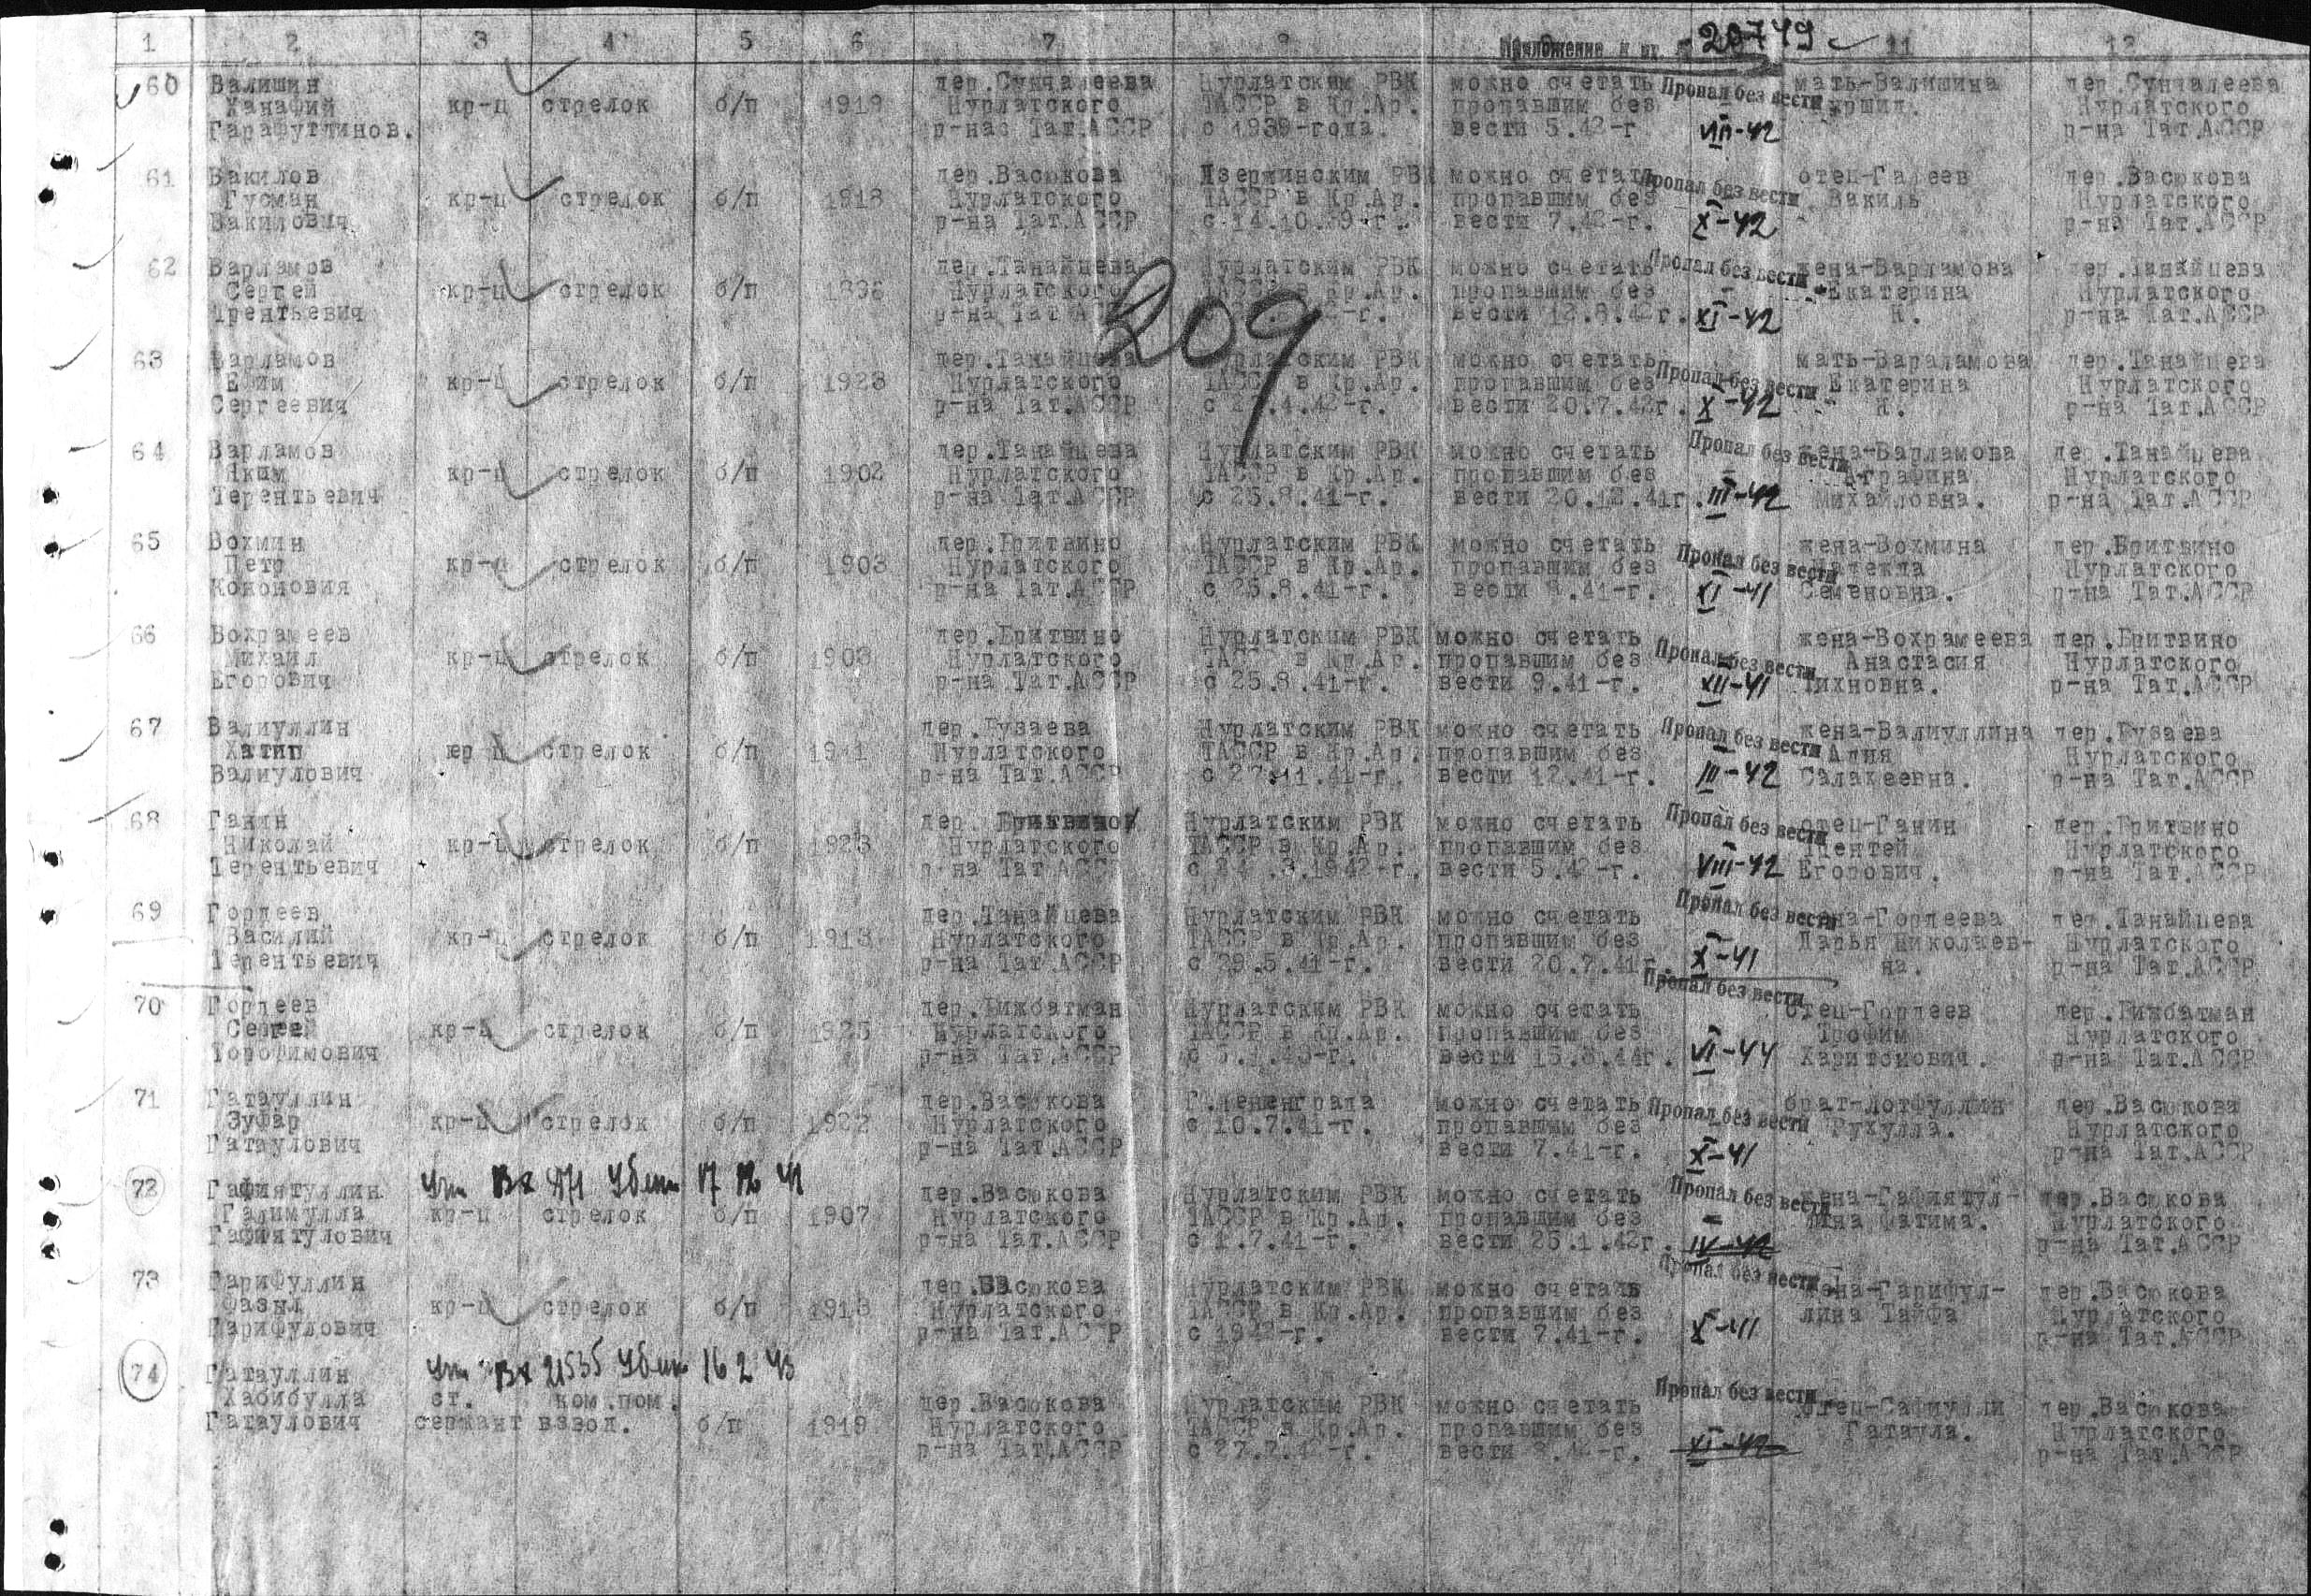 1 2 3 4 5 6 7 8 11 12
Приложение к вх. 20749
60 Валишин дер.Сунчалеева Нурлатским РВК можно счетать Пропал без вести мать-Валишина дер.Сунчалеева
Ханафий кр-ц стрелок б/п 1919 Нурлатского ТАССР в Кр.Ар. пропавшим без Нурлатского
Гарафутдинов. р-нас Тат.АССР с 1939-года. вести 5.42-г VIII-42 р-на Тат.АССР
61 Вакилов дер.Васюкова Дзержинским РВК можно счетать Пропал без вести отец-Галеев дер.Васюкова
Гусман кр-ц стрелок б/п 1918 Нурлатского ТАССР в Кр.Ар. пропавшим без Вакиль Нурлатского
Вакилович р-на Тат.АССР с 14.10.39-г. вести 7.42-г. X-42 р-на Тат.АССР
62 Варламов дер.Танайцева Нурлатским РВК можно счетать Пропал без вести жена-Варламова дер.Танайцева
Сергей кр-ц стрелок б/п Нурлатского ТАССР в Кр.Ар. пропавшим без Екатерина Нурлатского
Трентьевич р-на Тат. вести 12.8.42г. XI-42 К. р-на Тат.АССР
209
63 Варламов дер.Танайцева Нурлатским РВК можно счетать Пропал без вести мать-Вараламова дер.Танайцева
Ефим кр-ц стрелок б/п 1923 Нурлатского ТАССР в Кр.Ар. пропавшим без Екатерина Нурлатского
Сергеевич р-на Тат.АССР вести 20.7.42г. X-42 К. р-на Тат.АССР
64 Варламов дер.Танайцева Нурлатским РВК можно счетать Пропал без вести жена-Варламова дер.Танайцева
Яким кр-ц стрелок б/п 1902 Нурлатского ТАССР в Кр.Ар. пропавшим без Аграфина Нурлатского
Терентьевич р-на Тат.АССР с 25.8.41-г. вести 20.12.41г. III-42 Михайловна. р-на Тат.АССР
65 Вохмин дер.Бритвино Нурлатским РВК можно счетать Пропал без вести жена-Вохмина дер.Бритвино
Петр кр-ц стрелок б/п 1903 Нурлатского ТАССР в Кр.Ар. пропавшим без Нурлатского
Кононовия р-на Тат.АССР с 25.8.41-г. вести 8.41-г. XI-41 Семеновна. р-на Тат.АССР
66 Вохрамеев дер.Бритвино Нурлатским РВК можно счетать Пропал без вести жена-Вохрамеева дер.Бритвино
Михаил кр-ц стрелок б/п 1903 Нурлатского ТАССР в Кр.Ар. пропавшим без Анастасия Нурлатского
Егорович р-на Тат.АССР с 25.8.41-г. вести 9.41-г. XII-41 Тихновна. р-на Тат.АССР
67 Валиуллин дер.Бузаева Нурлатским РВК можно счетать Пропал без вести жена-Валиуллина дер.Бузаева
Хатип кр-ц стрелок б/п Нурлатского ТАССР в Кр.Ар. пропавшим без Алия Нурлатского
Валиулович р-на Тат.АССР с 27.11.41-г. вести 12.41-г. III-42 Салахеевна. р-на Тат.АССР
68 Ганин дер. Бритвино Нурлатским РВК можно счетать Пропал без вести отец-Ганин дер.Бритвино
Николай кр-ц стрелок б/п 1923 Нурлатского ТАССР в Кр.Ар. пропавшим без Нурлатского
Терентьевич р-на Тат АССР с 24.3.1942-г. вести 5.42-г. VIII-42 Егорович. р-на Тат.АССР
69 Гордеев дер.Танайцева Нурлатским РВК можно счетать Пропал без вести жена-Гордеева дер.Танайцева
Василий кр-ц стрелок б/п 1913 Нурлатского ТАССР в Кр.Ар. пропавшим без Дарья Николаев- Нурлатского
Терентьевич р-на Тат.АССР с 29.5.41-г. вести 20.7.41г. X-41 на. р-на Тат.АССР
70 Гордеев дер.Бикбатман Нурлатским РВК можно счетать Пропал без вести отец-Гордеев дер.Бикбатман
Сергей кр-ц стрелок б/п 1925 Нурлатского ТАССР в Кр.Ар. пропавшим без Трофим Нурлатского
Торофимович р-на Тат.АССР с 5.1.43-г. вести 15.3.44г. VI-44 Харитонович. р-на Тат.АССР
71 Гатауллин дер.Васюкова Г.Ленинграда можно счетать Пропал без вести брат-Лотфуллин дер.Васюкова
Зуфар кр-ц стрелок б/п 1922 Нурлатского с 10.7.41-г. пропавшим без Рухулла. Нурлатского
Гатаулович р-на Тат.АССР вести 7.41-г. X-41 р-на Тат.АССР
72 Гафиятуллин дер.Васюкова Нурлатским РВК можно счетать Пропал без вести жена-Гафиятул- дер.Васюкова
Галимулла кр-ц стрелок б/п 1907 Нурлатского ТАССР в Кр.Ар. пропавшим без лина Фатима. Нурлатского
Гафиятулович р-на Тат.АССР с 1.7.41-г. вести 25.1.42г. IV-42 р-на Тат.АССР
73 Гарифуллин дер.Васюкова Нурлатским РВК можно счетать Пропал без вести жена-Гарифул- дер.Васюкова
Фазыл кр-ц стрелок б/п 1913 Нурлатского ТАССР в Кр.Ар. пропавшим без лина Тайфа Нурлатского
Гарифулович р-на Тат.АССР вести 7.41-г. X-41 р-на Тат.АССР
74 Гатауллин Вх 21535 Убит 16 2 43
Хабибулла ст. ком.пом. дер.Васюкова Нурлатским РВК можно счетать Пропал без вести отец-Сафиулли дер.Васюкова
Гатаулович сержант взвод. б/п 1919 Нурлатского ТАССР в Кр.Ар. пропавшим без Гатаула. Нурлатского
р-на Тат.АССР с 27.7.42-г. вести 8.42-г. XI-42 р-на Тат.АССР